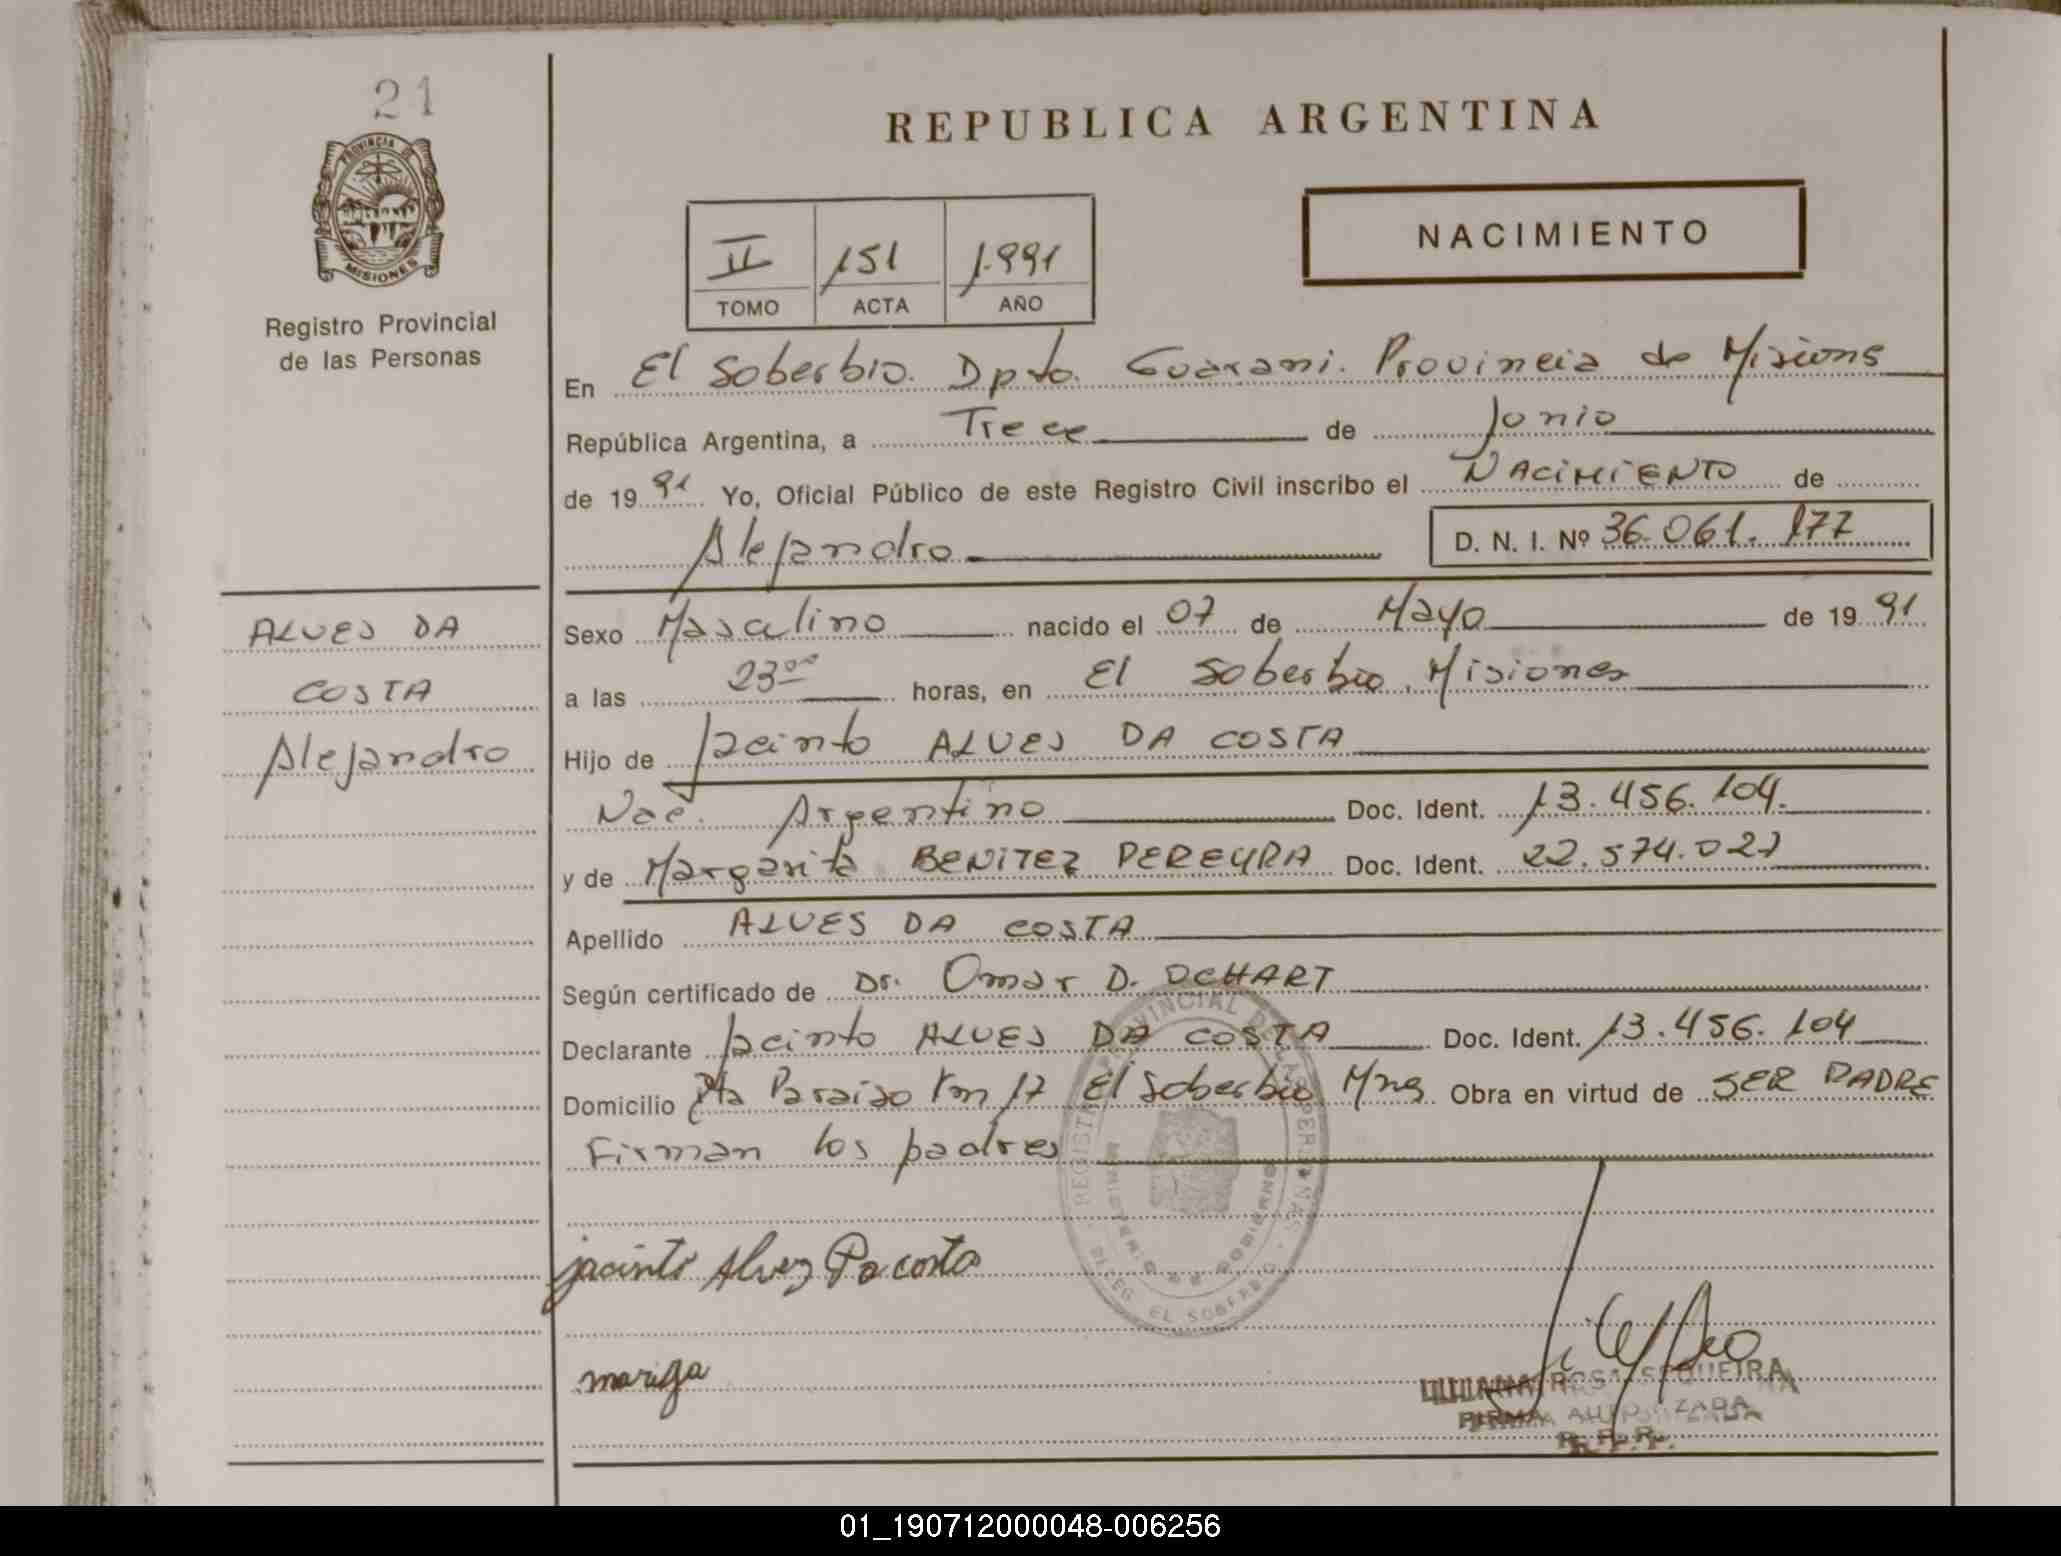 21
PROVINCIA DE
MISIONES
Registro Provincial
de las Personas
REPUBLICA ARGENTINA
NACIMIENTO
II 151 1.991
TOMO ACTA AÑO
En El Soberbio. Dpto. Guarani. Provincia de Misions
República Argentina, a Trece de Junio
de 1991 Yo, Oficial Público de este Registro Civil inscribo el NACIMIENTO de
Alejandro D. N. I. Nº 36.061.177
ALVES DA
COSTA
Alejandro
Sexo Masculino nacido el 07 de Mayo de 1991
a las 23 00 horas, en El Soberbio. Misiones
Hijo de Jacinto ALVES DA COSTA
Nac. Argentino Doc. Ident. 13.456.104.
y de Margarita BENITEZ PEREYRA Doc. Ident. 22.574.027
Apellido ALVES DA COSTA
Según certificado de Dr. Omar D. OCHART
Declarante Jacinto ALVES DA COSTA Doc. Ident. 13.456.104
Domicilio Pta Paraiso Km 17 El Soberbio Mnes Obra en virtud de SER PADRE
Firman los padres
REGISTRO PROVINCIAL DE LAS PERSONAS
MINISTERIO DE GOBIERNO
DELEG. EL SOBERBIO
jacinto Alvez Da costa
LILIANA ROSA SEQUEIRA
FIRMA AUTORIZADA
R. P. P.
01_190712000048-006256